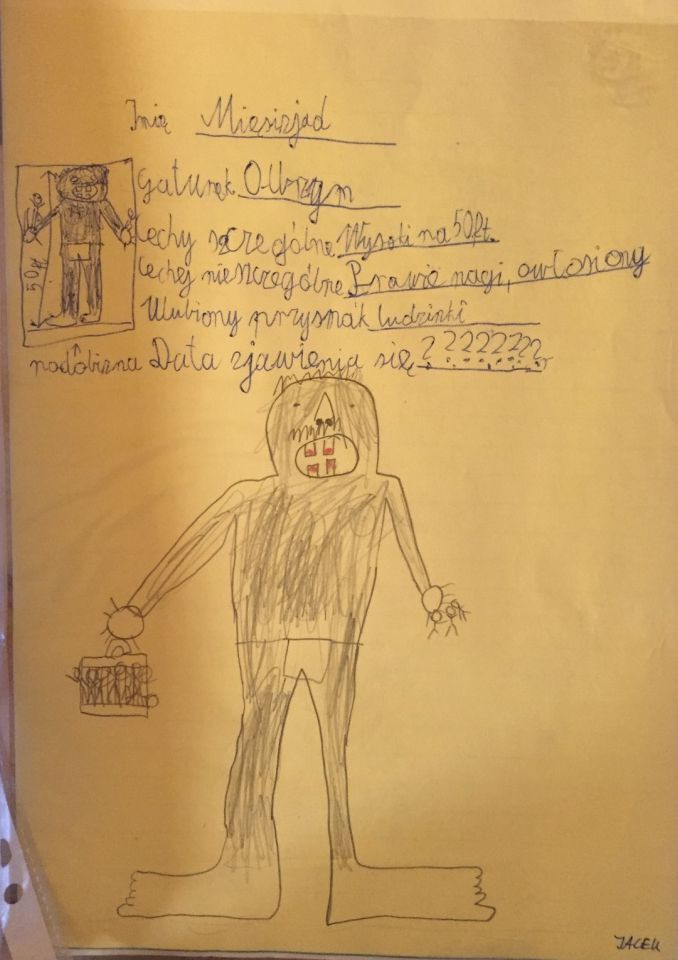 Imię Mięsirjad
Gatunek Olbrzym
Cechy szczególne Wysoki na 50ft.
Cechy nieszczególne Prawie nagi, owłosiony
Ulubiony przysmak ludzinki
podobizna Data zjawienia się ????????
50ft
JACEK